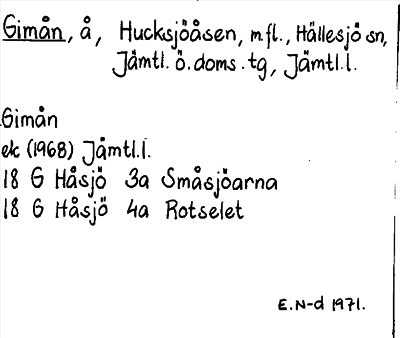 Gimån, å, Hucksjöåsen, m.fl., Hällesjö sn,
Jämtl. ö. doms. tg, Jämtl. l.
Gimån
ek (1968) Jämtl. l.
18 G Håsjö 3a Småsjöarna
18 G Håsjö 4a Rotselet
E.N-d 1971.